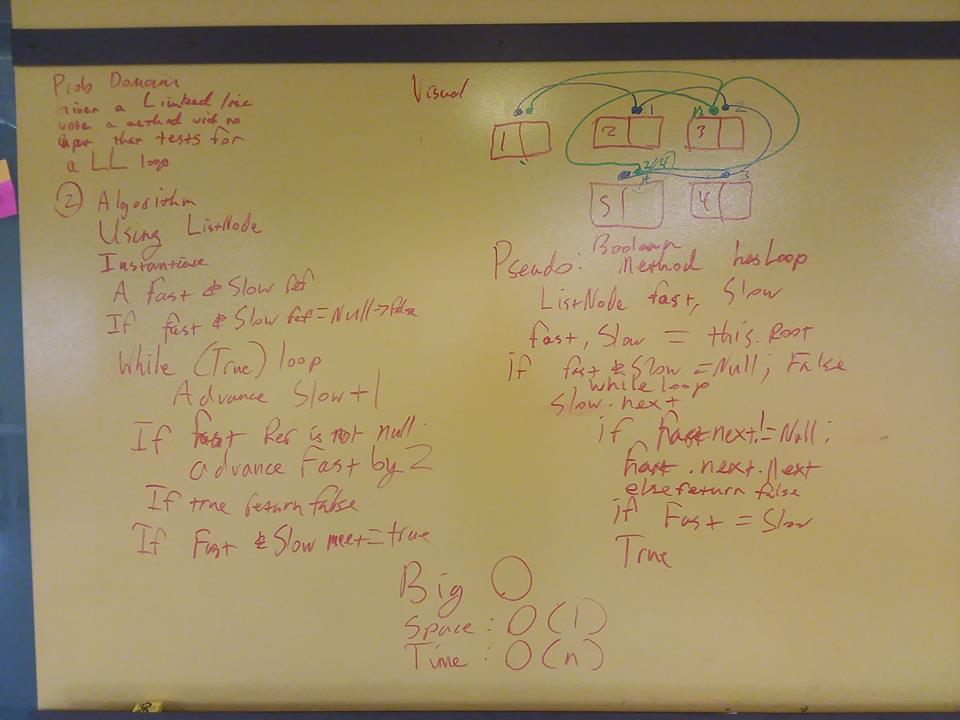 Prob Domain
Given a Linked list
write a method with no
input that tests for
a LL loop
② Algorithm
Using ListNode
Instantiate
A fast & Slow ref
If fast & Slow ref = Null → false
While (True) loop
Advance Slow + 1
If fast Ref is not null
advance Fast by 2
If true return false
If Fast & Slow meet = true
Visual
1 2
1 2 3
3
5 4
Pseudo: Boolean Method hasLoop
ListNode fast, Slow
fast, Slow = this.Root
if fast & Slow = Null; False
while loop
Slow.next
if fast.next != Null;
fast.next.Next
else return false
if Fast = Slow
True
Big O
Space: O(1)
Time: O(n)